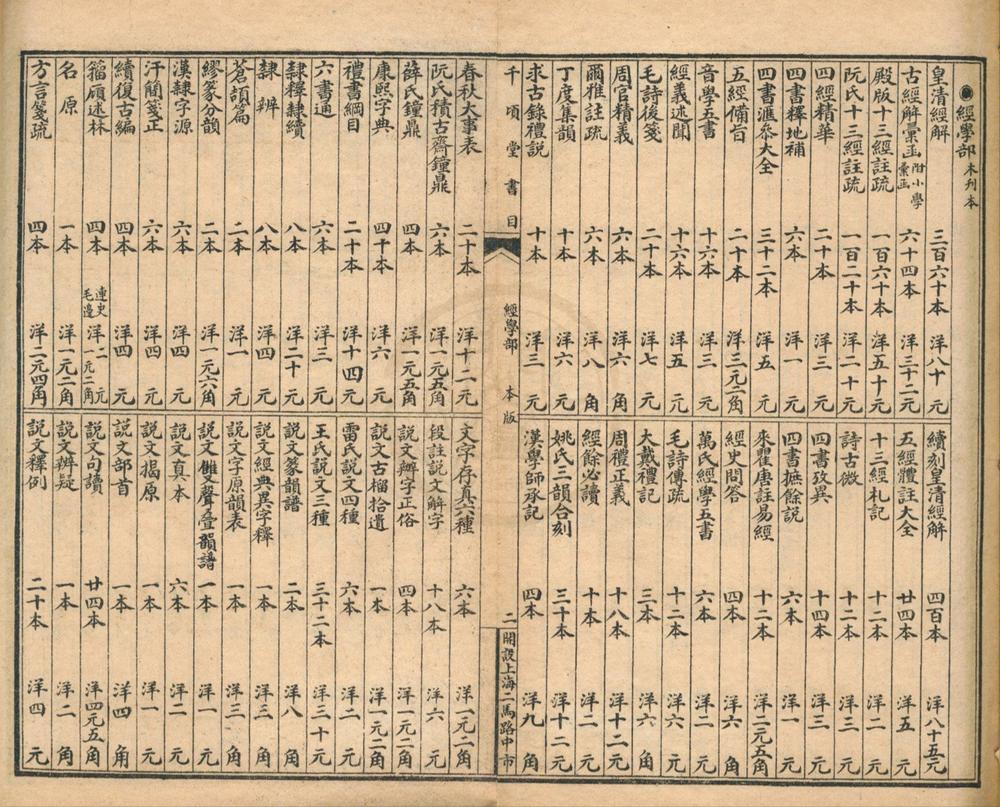 經學部 木刊本
皇清經解 三百六十本 洋八十元
古經解彙函 附小學彙函 六十四本 洋三十二元
殿版十三經註疏 一百六十本 洋五十元
阮氏十三經註疏 一百二十本 洋二十元
四經精華 二十本 洋三元
四書釋地補 六本 洋一元
四書滙叅大全 三十二本 洋五元
五經備旨 二十本 洋三元二角
音學五書 十六本 洋三元
經義述聞 十六本 洋五元
毛詩後箋 二十本 洋七元
周官精義 六本 洋六角
爾雅註疏 六本 洋八角
丁度集韻 十本 洋六元
求古錄禮說 十本 洋三元
續刻皇清經解 四百本 洋八十五元
五經體註大全 廿四本 洋五元
十三經札記 十二本 洋二元
詩古微 十二本 洋三元
四書攷異 十四本 洋三元
四書摭餘説 六本 洋一元
來瞿唐註易經 十二本 洋二元五角
經史問答 四本 洋六角
萬氏經學五書 六本 洋二元
毛詩傳疏 十二本 洋六元
大戴禮記 三本 洋六角
周禮正義 十八本 洋十二元
經餘必讀 十本 洋二元
姚氏三韻合刻 三十本 洋十二元
漢學師承記 四本 洋九角
千頃堂書目 經學部 本版 二 開設上海二馬路中市
春秋大事表 二十本 洋十二元
阮氏積古齋鐘鼎 六本 洋一元五角
薛氏鐘鼎 四本 洋一元五角
康熙字典 四十本 洋六元
禮書綱目 二十本 洋十四元
六書通 六本 洋三元
隸釋隸續 八本 洋二十元
隸辨 八本 洋四元
蒼頡篇 二本 洋一元
繆篆分韻 二本 洋一元六角
漢隸字源 六本 洋四元
汗簡箋正 六本 洋四元
續復古編 四本 洋四元
籀䯧述林 四本 連史洋二元 毛邊一元二角
名原 一本 洋一元二角
方言箋疏 四本 洋二元四角
文字存真六種 六本 洋一元二角
段註說文解字 十八本 洋六元
說文辨字正俗 四本 洋一元二角
說文古榴拾遺 一本 洋一元二角
雷氏說文四種 六本 洋二元
王氏說文三種 三十二本 洋三十元
說文篆韻譜 二本 洋八角
說文經典異字釋 一本 洋三角
說文字原韻表 一本 洋三角
說文雙聲叠韻譜 一本 洋一元
說文真本 六本 洋二元
說文揭原 一本 洋一元
說文部首 一本 洋四角
說文句讀 廿四本 洋四元五角
說文辨疑 一本 洋二角
說文釋例 二十本 洋四元